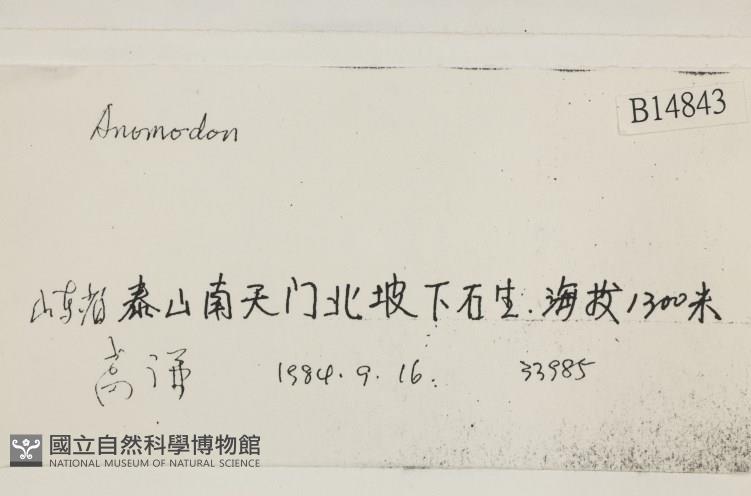 B14843
Anomodon
山东省 泰山南天门北坡下石生.海拔1300米
高谦 1984.9.16. 33985
國立自然科學博物館
NATIONAL MUSEUM OF NATURAL SCIENCE